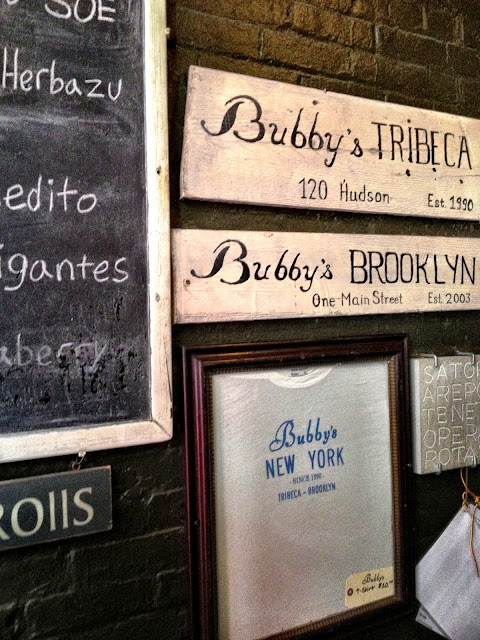 SOE
Herbazu
edito
igantes
aberry
ROllS
Bubby's TRIBECA
120 Hudson Est. 1990
Bubby's BROOKLYN
One Main Street Est. 2003
Bubby's
NEW YORK
- SINCE 1990 -
TRIBECA - BROOKLYN
Bubby's
T-Shirt
SATOR
AREPO
TENE
OPERA
ROTA